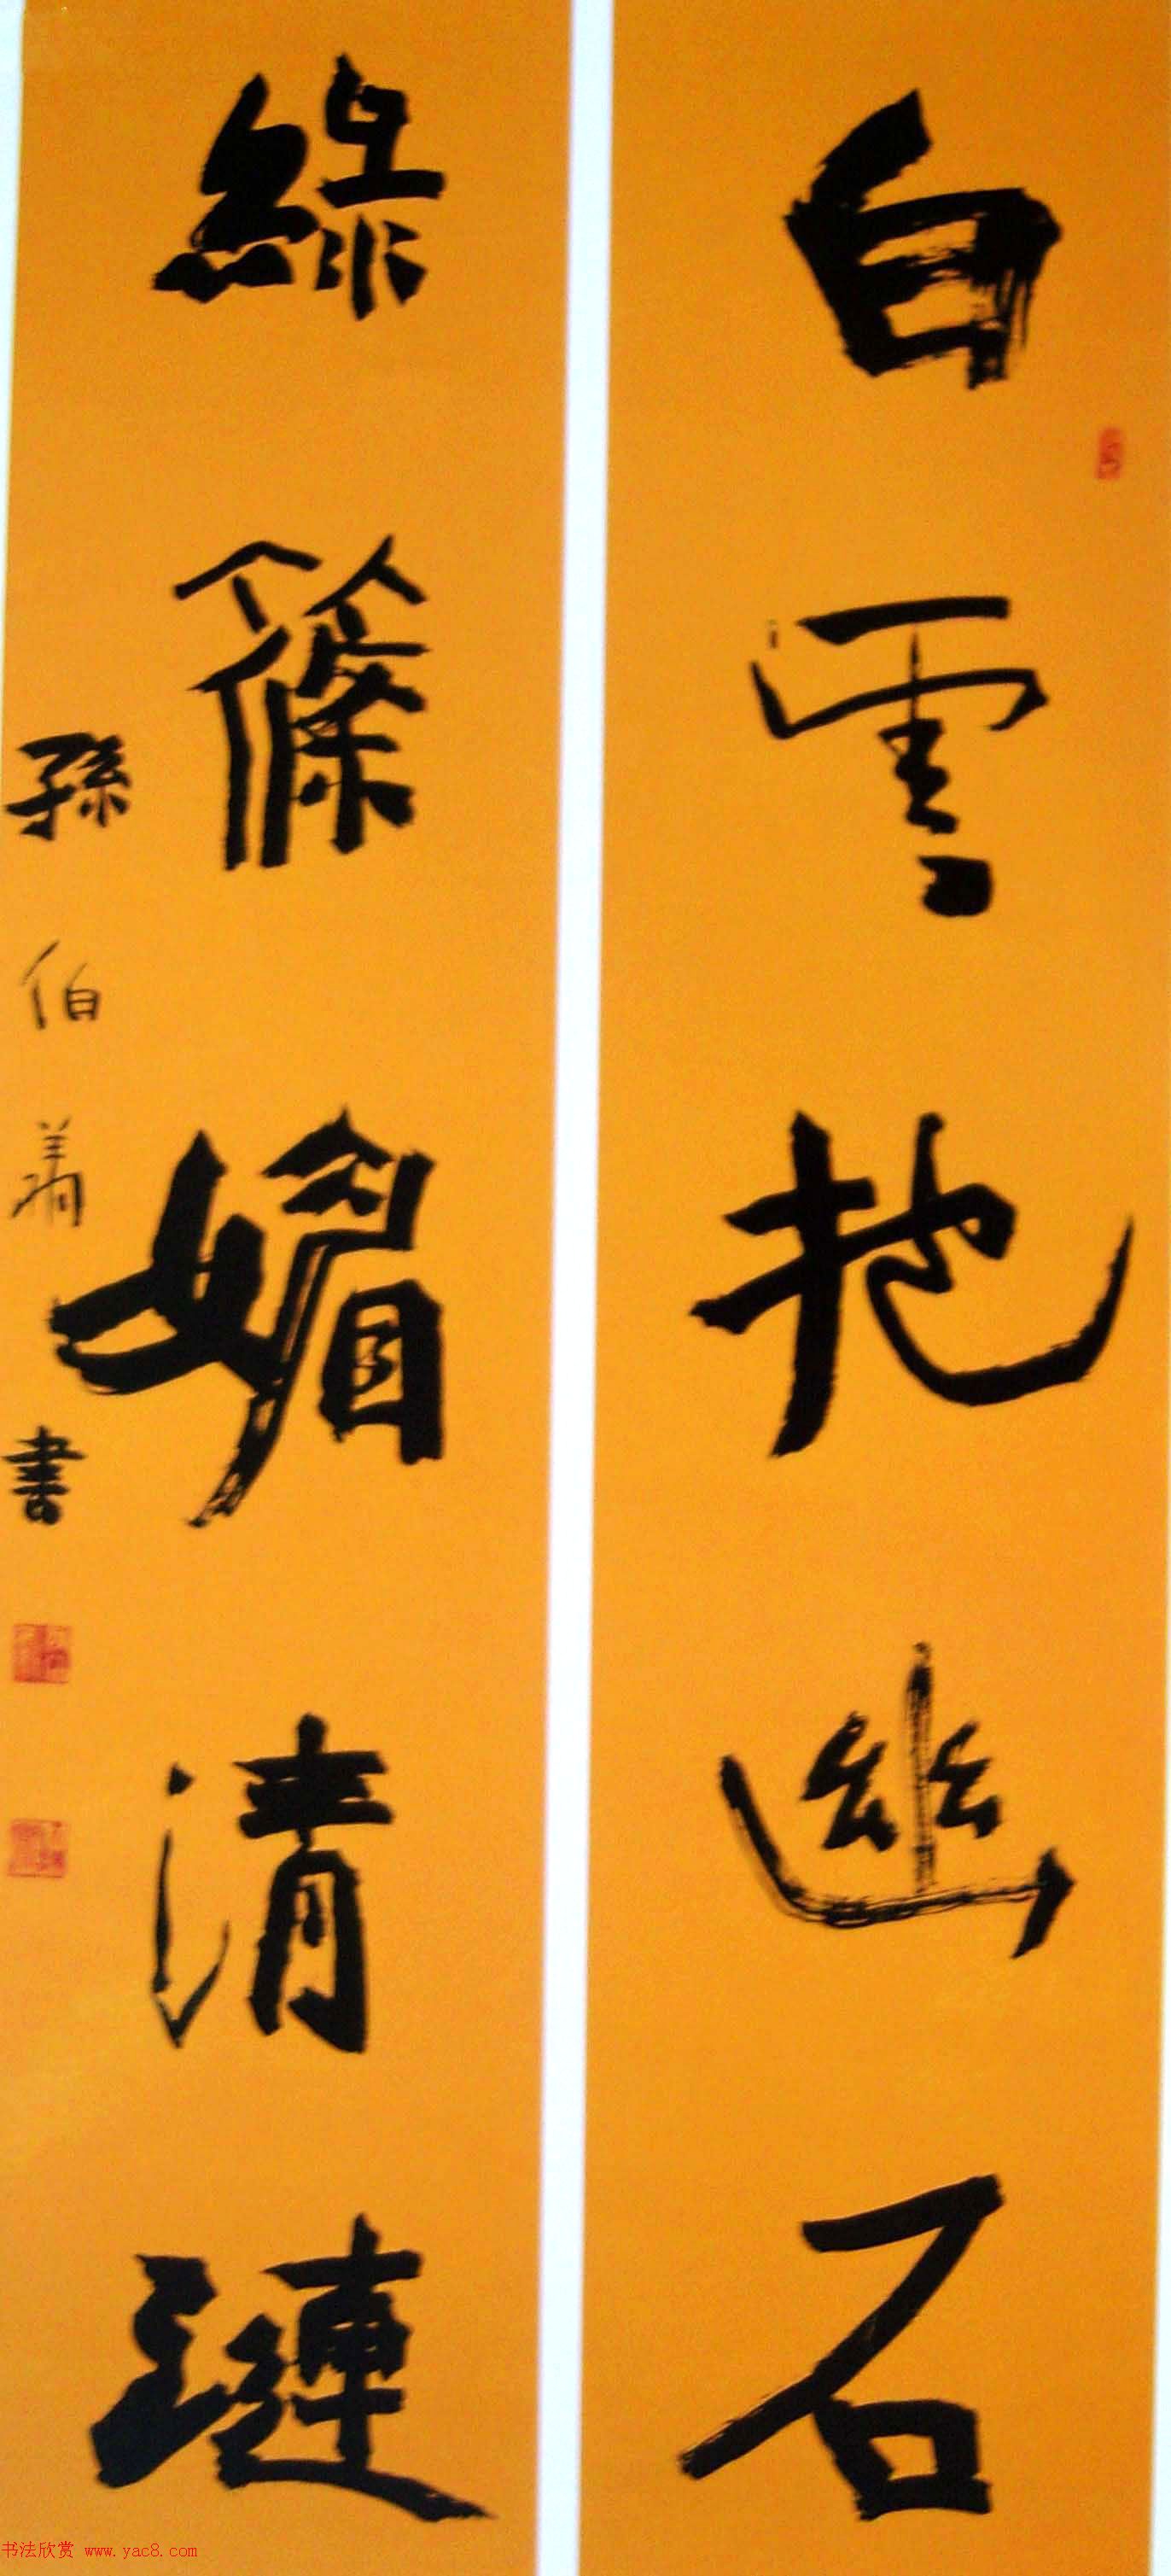 白雲抱幽石
綠篠媚清璉
孫伯翔書
书法欣赏 www.yac8.com